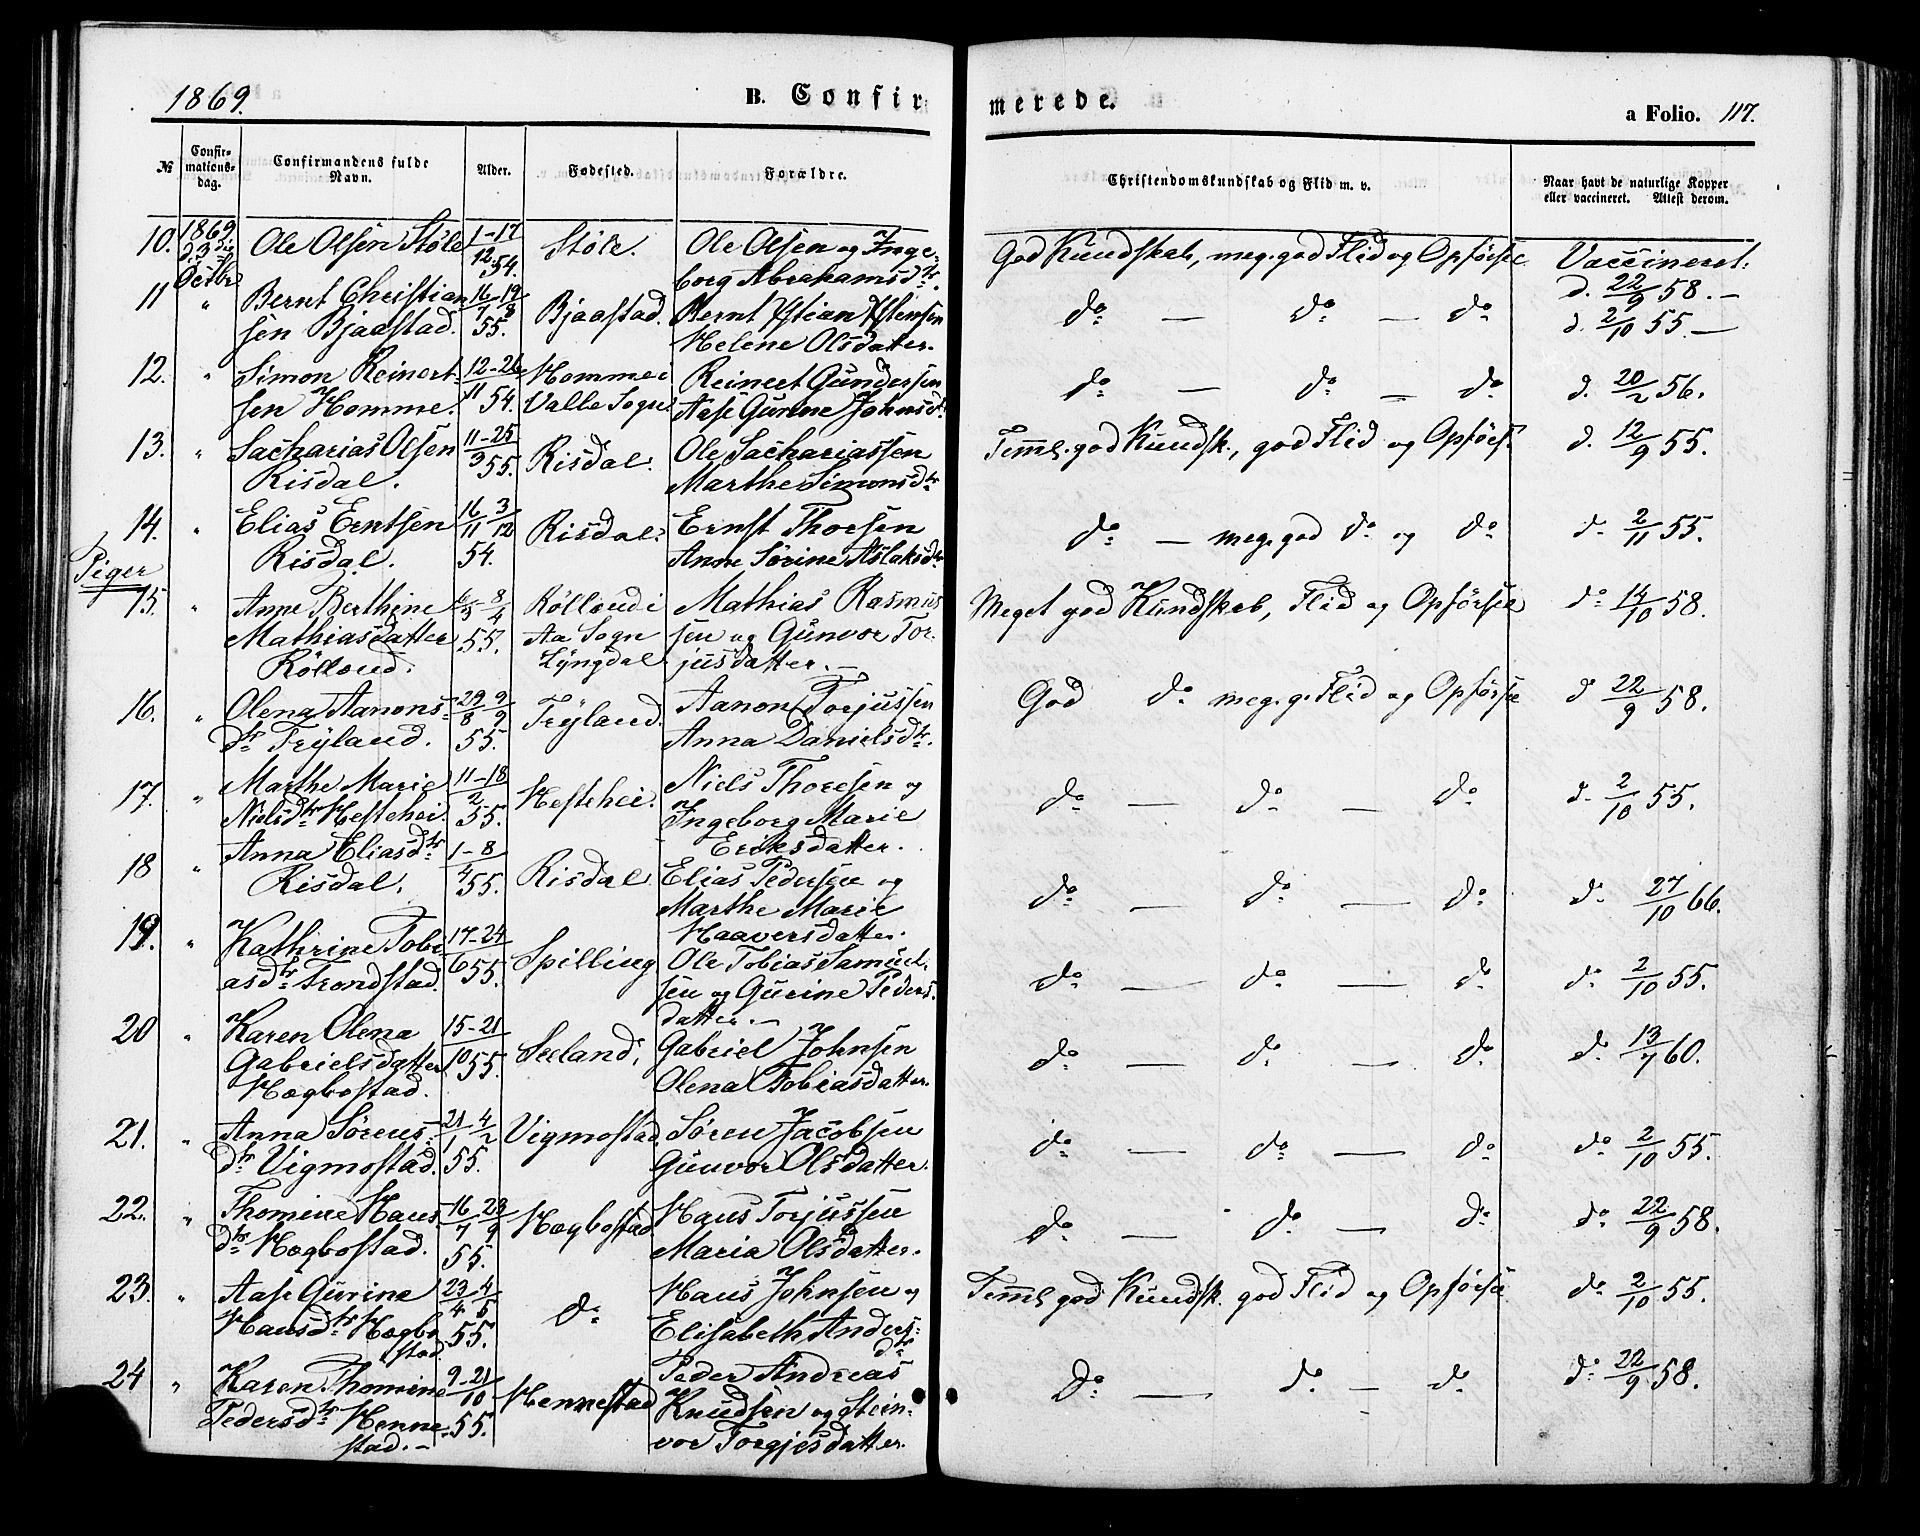 1869.
B. Confir-
merede.
a Folio. 117.
№
Confir-
mations-
dag.
Confirmandens fulde
Navn.
Alder.
Fødested.
Forældre.
Christendomskundskab og Flid m. v.
Naar havt de naturlige Kopper
eller vaccineret. Attest derom.
10. 1869 Ole Olsen Støle 1-17 Støle. Ole Olsen og Inge- God Kundskab, meg. god Flid og Opførsel Vaccineret:
d. 3die 12 54. borg Abrahamsdtr. d. 22/9 58. —
Octbr
11 " Bernt Christian 16-19 Bjaastad. Bernt Xstian Xstensen do — do — do d. 2/10 55. —
sen Bjaastad. 7 8 55. Helene Olsdatter.
12. " Simon Reinert- 12-26 Homme i Reinert Gundersen do — do — do d. 20/2 56.
sen Homme. 11 54. Valle Sogn. Aase Gurine Johnsd.
13. " Sacharias Olsen 11-25 Risdal. Ole Sachariassen Temml. god Kundsk., god Flid og Opførs. d. 12/9 55.
Risdal. 3 55. Marthe Simonsdtr
14. " Elias Erntsen 16/11 3/12 Risdal. Ernst Thorsen do — meg. god do og do do 2/11 55.
Risdal. 54. Anne Sørine Aslaksdtr
Piger
15. " Anne Berthine 6/3 8/4 Rølland i Mathias Rasmus Meget god Kundskab, Flid og Opførsel do 14/10 58.
Mathiasdatter 55. Aa Sogn sen og Gunvor Tor-
Rølland. Lyngdal jusdatter. —
16. " Olena Aanons- 29/8 9/9 Tryland. Aanon Torjussen God do meg. g. Flid og Opførse do 22/9 58.
dtr Tryland. 55. Anna Danielsdtr.
17. " Marthe Marie 11-18 Hestehei. Niels Thorsen og do — do — do d. 2/10 55.
Nielsdtr Hestehei. 2 55. Ingeborg Marie
Eriksdatter.
18 " Anna Eliasdtr 1-8 Risdal Elias Pedersen og do — do — do do 27/10 66.
Risdal. 4 55. Marthe Marie
Haaversdatter.
19. " Kathrine Tobi 17-24 Spilling Ole Tobias Samuel- do — do — do do 2/10 55.
asdtr Trondstad. 6 55. sen og Gurine Peders-
datter. —
20 " Karen Olena 15-21 Seeland. Gabriel Johnsen do — do — do do 13/7 60.
Gabrielsdatter 10 55. Olena Tobiasdatter.
Hægbostad.
21. " Anna Sørens- 21/1 4/2 Vigmostad. Søren Jacobsen do — do — do do 2/10 55.
dtr Vigmostad. 55. Gunvor Olsdatter.
22. " Thomine Hans 16/7 23/9 Hægbostad Hans Torjussen do — do — do do 22/9 58.
dtr Hægbostad. 55. Maria Olsdatter.
23. " Aase Gurine 23/4 4/5 do Hans Johnsen og Temml. god Kundsk. god Flid og Opførse do 2/10 55.
Hansdtr Hægbo 55. Elisabeth Anders-
stad. dtr
24 " Karen Thomine 9-21 Hennestad Peder Andreas do — do — do do 22/9 58.
Pedersdtr Henne- 10 55. Knudsen og Stein-
stad. — vor Torgjesdatter.